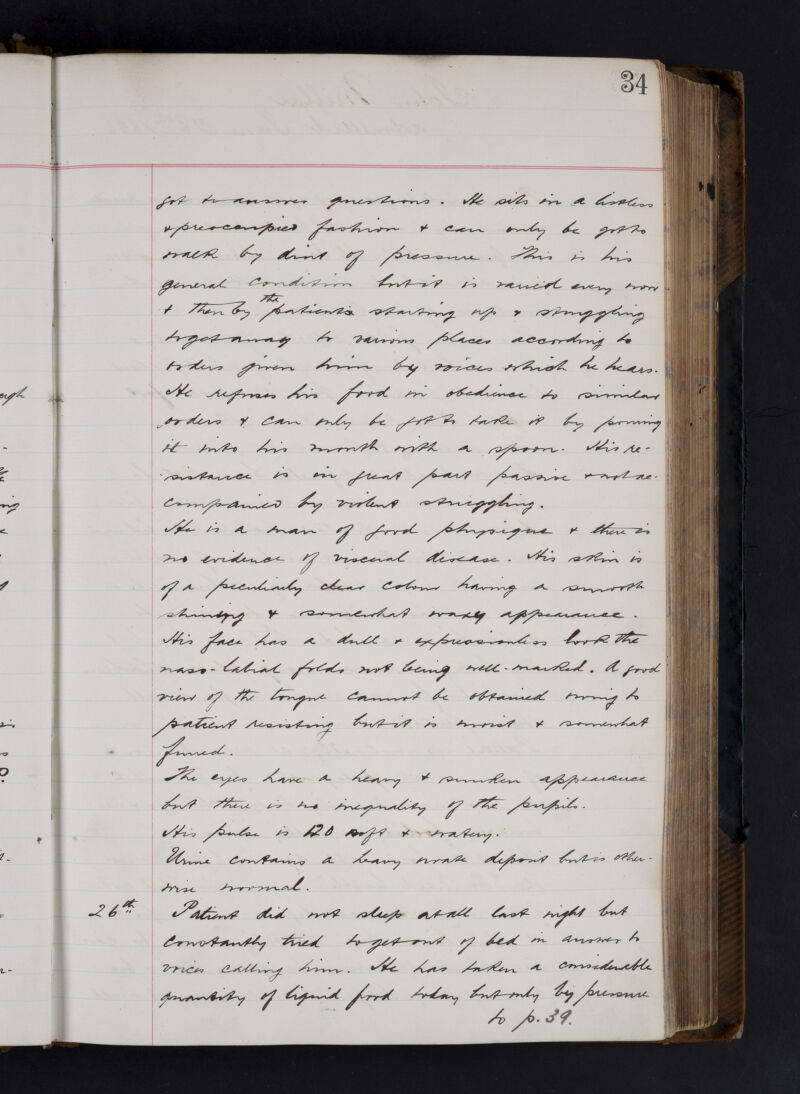 34
got to answer questions. He sits in a listless
& preoccupied fashion & can only be got to
walk by dint of pressure. This is his
general condition but it is varied every now
& then by the patients starting up & struggling
to get away to various places according to
orders given him by voices which he hears.
He refuses his food in obedience to similar
orders & can only be got to take it by pouring
it into his mouth with a spoon. His re-
sistance is in great part passive & not ac-
companied by violent struggling.
He is a man of good physique & there is
no evidence of visceral disease. His skin is
of a peculiarly clear colour having a smooth
shining & somewhat waxy appearance.
His face has a dull & expressionless look the
naso-labial folds not being well-marked. A good
view of the tongue cannot be obtained owing to
patient resisting but it is moist & somewhat
furred.
The eyes have a heavy & sunken appearance
but there is no inequality of the pupils.
His pulse is 120 soft & watery.
Urine contains a heavy urate deposit but is other-
wise normal.
26th Patient did not sleep at all last night but
constantly tried to get out of bed in answer to
voices calling him. He has taken a considerable
quantity of liquid food today but only by pressure
to p. 39.